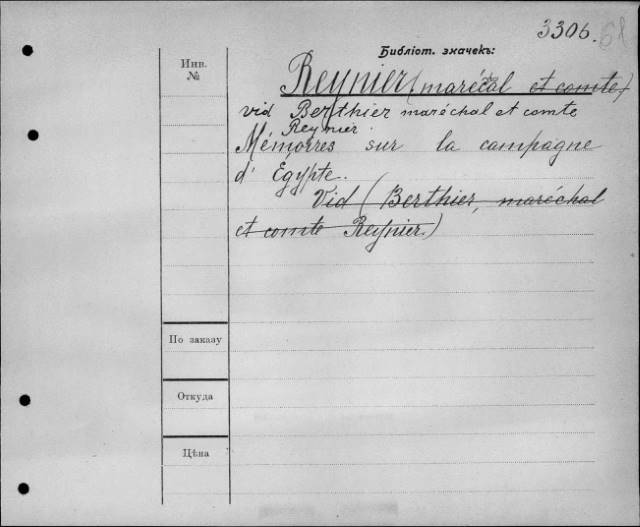 3306. 61
Библіот. значекъ:
Инв.
№
Reynier (marécal et comte)
vid Berthier maréchal et comte
Reynier
Mémoires sur la campagne
d' Égypte.
Vid (Berthier, maréchal
et comte Reynier.)
По заказу
Откуда
Цѣна